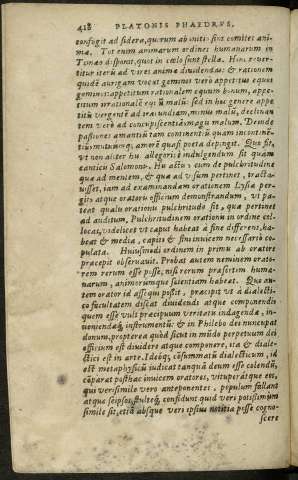 418 PLATONIS PHAEDRVS,
confugit ad sidera, quorum ab initio sint comites ani-
mæ. Tot enim animarum ordines humanarum in
Timæo disponit, quot in cœlo sunt stellæ. Hinc rever-
titur iterū ad vires animæ dividendas: & rationem
quidē aurigam vocat geminos verò appetitus equos
geminos: appetitum rationalem equum bonum, appe-
titum irrationalē equū malū: sed in hoc genere appe
titū vergentē ad irascundiam, minus malū, declinan-
tem verò ad concupiscentiā magis malum. Deinde
passiones amantiū tam continentiū quàm incontinē-
tiū mutuumq́; amorē quasi poeta depingit. Quo fit,
vt non aliter hu allegoriæ indulgendum sit quàm
cantici Salomonis. Hactenus cum de pulchritudine
quæ ad mentem, & quæ ad visum pertinet, tracta-
uisset, iam ad examinandam orationem Lysiæ per-
git: atque oratoris officium demonstrandum, vt pa-
teat qualis orationis pulchritudo sit, quæ pertinet
ad auditum. Pulchritudinem orationis in ordine col-
locat, videlicet vt caput habeat à fine differens, ha-
beat & media, capiti & fini inuicem necessariò co-
pulata. Huiusmodi ordinem in primis ab oratore
præcepit obseruari. Probat autem neminem orato-
rem rerum esse posse, nisi rerum præsertim huma-
narum, animorumque scientiam habeat. Quo au-
tem orator id assequi possit, præcipit vt à dialecti-
co facultatem discat diuidendi atque componendi
quem esse vult præcipuum veritatis indagandæ, in-
ueniendæq́; instrumentū: & in Philebo dei nuncupat
donum, propterea quòd sicut in mūdo perpetuum dei
officium est diuidere atque componere, ita & diale-
ctici est in arte. Ideóq́; cōsummatū dialecticum, id
est metaphysicū iudicat tanquā deum esse colendū,
cōparat posthac inuicem oratores, vituperat que eos,
qui verisimile vero anteponentes, populum fallunt
atque seipsos, stulteq́; confidunt quid vero potissimum
simile sit, etiā absque vero ipsius notitia posse cogno-
scere